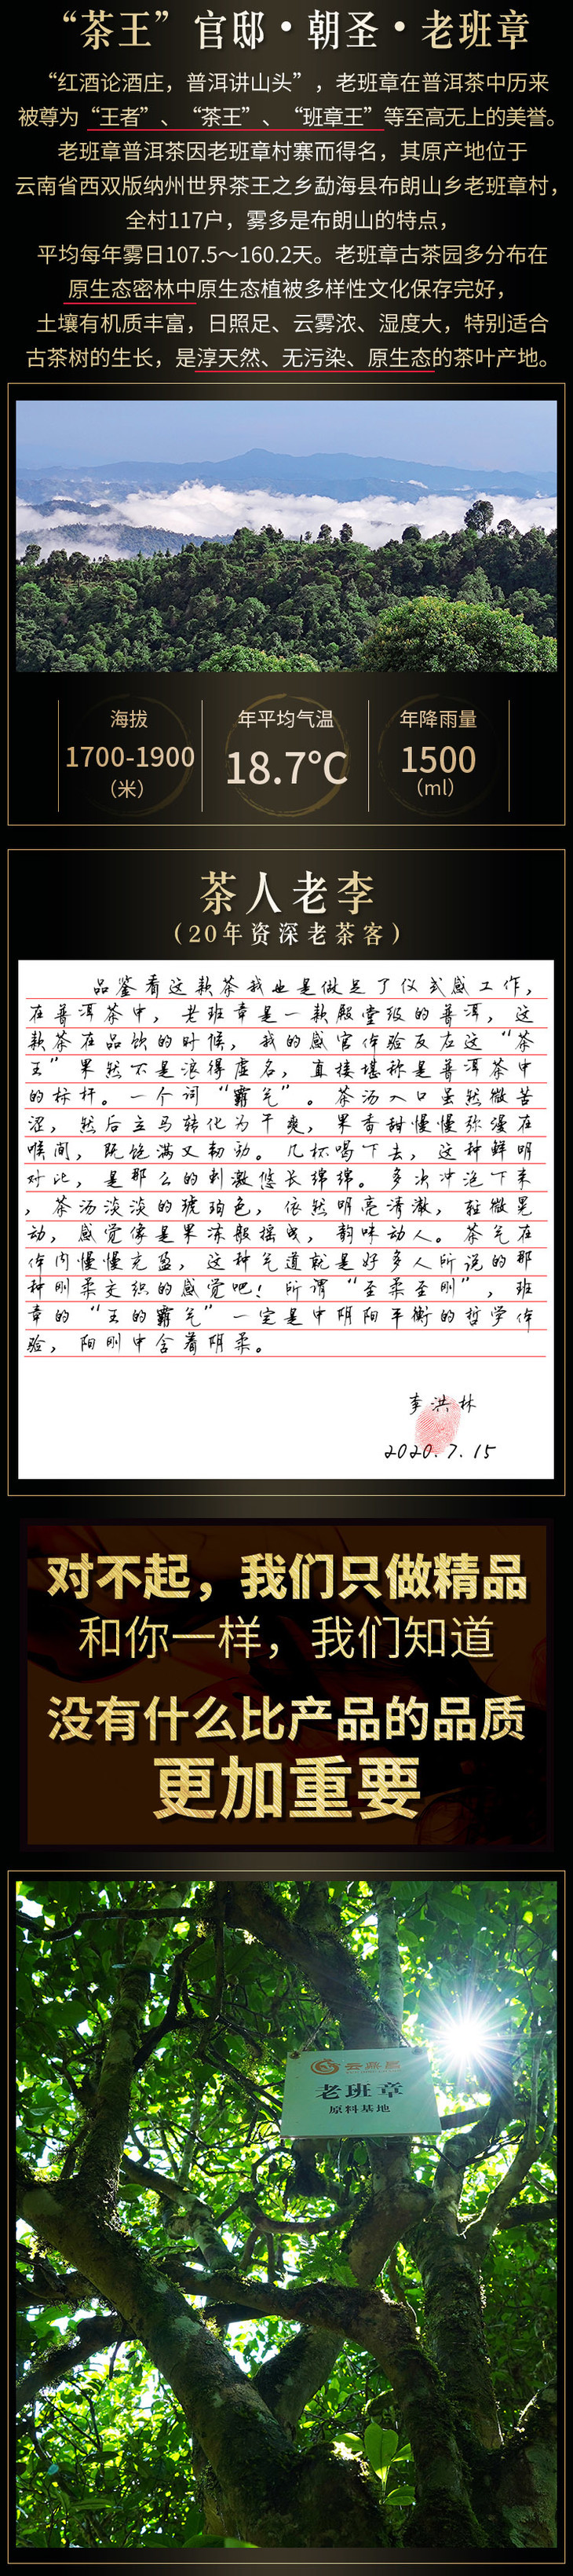 “茶王”官邸·朝圣·老班章
“红酒论酒庄，普洱讲山头”，老班章在普洱茶中历来
被尊为“王者”、“茶王”、“班章王”等至高无上的美誉。
老班章普洱茶因老班章村寨而得名，其原产地位于
云南省西双版纳州世界茶王之乡勐海县布朗山乡老班章村，
全村117户，雾多是布朗山的特点，
平均每年雾日107.5～160.2天。老班章古茶园多分布在
原生态密林中原生态植被多样性文化保存完好，
土壤有机质丰富，日照足、云雾浓、湿度大，特别适合
古茶树的生长，是淳天然、无污染、原生态的茶叶产地。
海拔
1700-1900
（米）
年平均气温
18.7°C
年降雨量
1500
（ml）
茶人老李
（20年资深老茶客）
品鉴着这款茶我也是做足了仪式感工作，
在普洱茶中，老班章是一款殿堂级的普洱，这
款茶在品饮的时候，我的感官体验反应这“茶
王”果然不是浪得虚名，直接堪称是普洱茶中
的标杆。一个词“霸气”。茶汤入口虽然微苦
涩，然后立马转化为干爽，果香甜慢慢弥漫在
喉间，既饱满又韧劲。几杯喝下去，这种鲜明
对比，是那么的刺激悠长绵绵。多次冲泡下来
，茶汤淡淡的琥珀色，依然明亮清澈，轻微晃
动，感觉像是果冻般摇曳，韵味动人。茶气在
体内慢慢充盈，这种气道就是好多人所说的那
种刚柔交织的感觉吧！所谓“至柔至刚”，班
章的“王的霸气”一定是中阴阳平衡的哲学体
验，阳刚中含着阴柔。
李洪林
2020.7.15
对不起，我们只做精品
和你一样，我们知道
没有什么比产品的品质
更加重要
老班章
原料基地